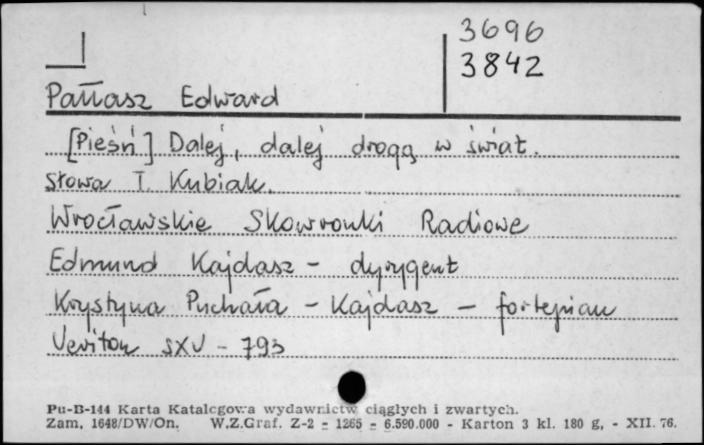 3696
3842
Pałłasz Edward
[Pieśń] Dalej, dalej drogą w świat.
Słowa T. Kubiak.
Wrocławskie Skowronki Radiowe
Edmund Kajdasz - dyrygent
Krystyna Puchała - Kajdasz - fortepian
Veriton SXV - 793
Pu-B-144 Karta Katalogowa wydawnictw ciągłych i zwartych.
Zam. 1648/DW/On. W.Z.Graf. Z-2 = 1265 = 6.590.000 - Karton 3 kl. 180 g, - XII. 76.